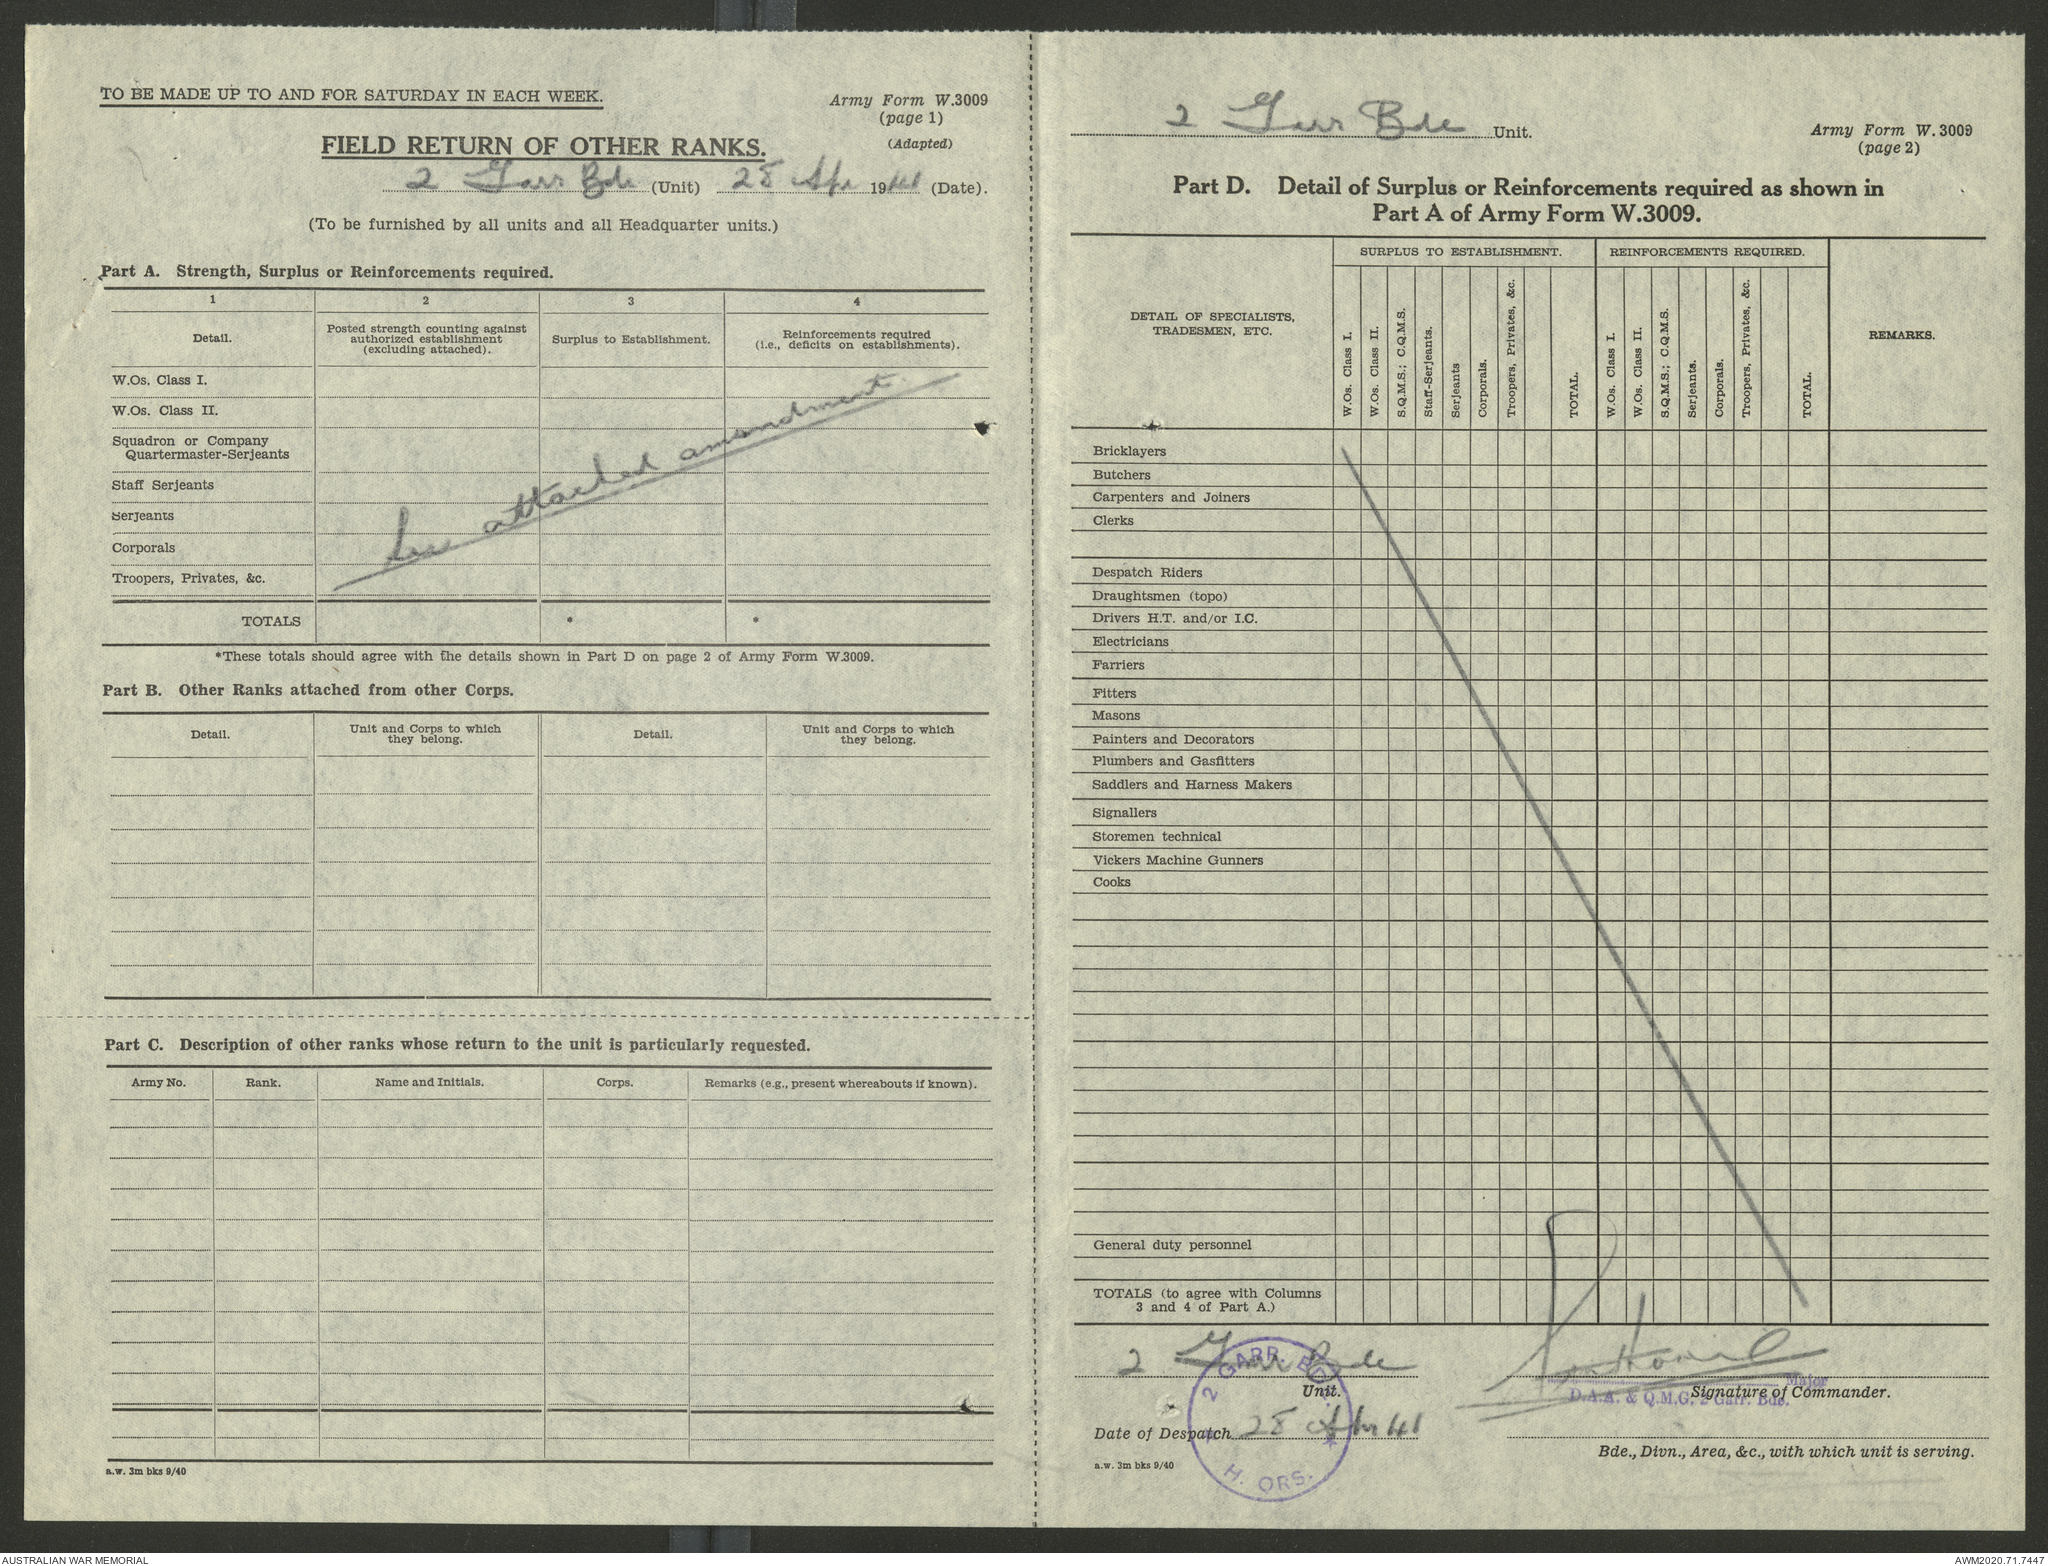 TO BE MADE UP TO AND FOR SATURDAY IN EACH WEEK.
Army Form W.3009
(page 1)
(Adapted)
FIELD RETURN OF OTHER RANKS.
2 Garr Bde (Unit) 28 Apr 1941 (Date).
(To be furnished by all units and all Headquarter units.)
Part A. Strength, Surplus or Reinforcements required.
1 2 3 4
Detail.
Posted strength counting against
authorized establishment
(excluding attached).
Surplus to Establishment.
Reinforcements required
(i.e., deficits on establishments).
W.Os. Class I.
W.Os. Class II.
Squadron or Company
Quartermaster-Serjeants
Staff Serjeants
Serjeants
Corporals
Troopers, Privates, &c.
See attached amendment
TOTALS * *
*These totals should agree with the details shown in Part D on page 2 of Army Form W.3009.
Part B. Other Ranks attached from other Corps.
Detail.
Unit and Corps to which
they belong.
Detail.
Unit and Corps to which
they belong.
Part C. Description of other ranks whose return to the unit is particularly requested.
Army No. Rank. Name and Initials. Corps. Remarks (e.g., present whereabouts if known).
a.w. 3m bks 9/40
2 Garr Bde Unit.
Army Form W.3009
(page 2)
Part D. Detail of Surplus or Reinforcements required as shown in
Part A of Army Form W.3009.
DETAIL OF SPECIALISTS,
TRADESMEN, ETC.
SURPLUS TO ESTABLISHMENT.
W.Os. Class I.
W.Os. Class II.
S.Q.M.S.; C.Q.M.S.
Staff-Serjeants.
Serjeants
Corporals.
Troopers, Privates, &c.
TOTAL.
REINFORCEMENTS REQUIRED.
W.Os. Class I.
W.Os. Class II.
S.Q.M.S.; C.Q.M.S.
Serjeants.
Corporals.
Troopers, Privates, &c.
TOTAL.
REMARKS.
Bricklayers
Butchers
Carpenters and Joiners
Clerks
Despatch Riders
Draughtsmen (topo)
Drivers H.T. and/or I.C.
Electricians
Farriers
Fitters
Masons
Painters and Decorators
Plumbers and Gasfitters
Saddlers and Harness Makers
Signallers
Storemen technical
Vickers Machine Gunners
Cooks
General duty personnel
TOTALS (to agree with Columns
3 and 4 of Part A.)
2 Garr Bde
Unit.
2 GARR. BDE.
H. QRS.
Major
D.A.A. & Q.M.G. 2 Garr. Bde.
Signature of Commander.
Date of Despatch 28 Apr 41
Bde., Divn., Area, &c., with which unit is serving.
a.w. 3m bks 9/40
AUSTRALIAN WAR MEMORIAL
AWM2020.71.7447